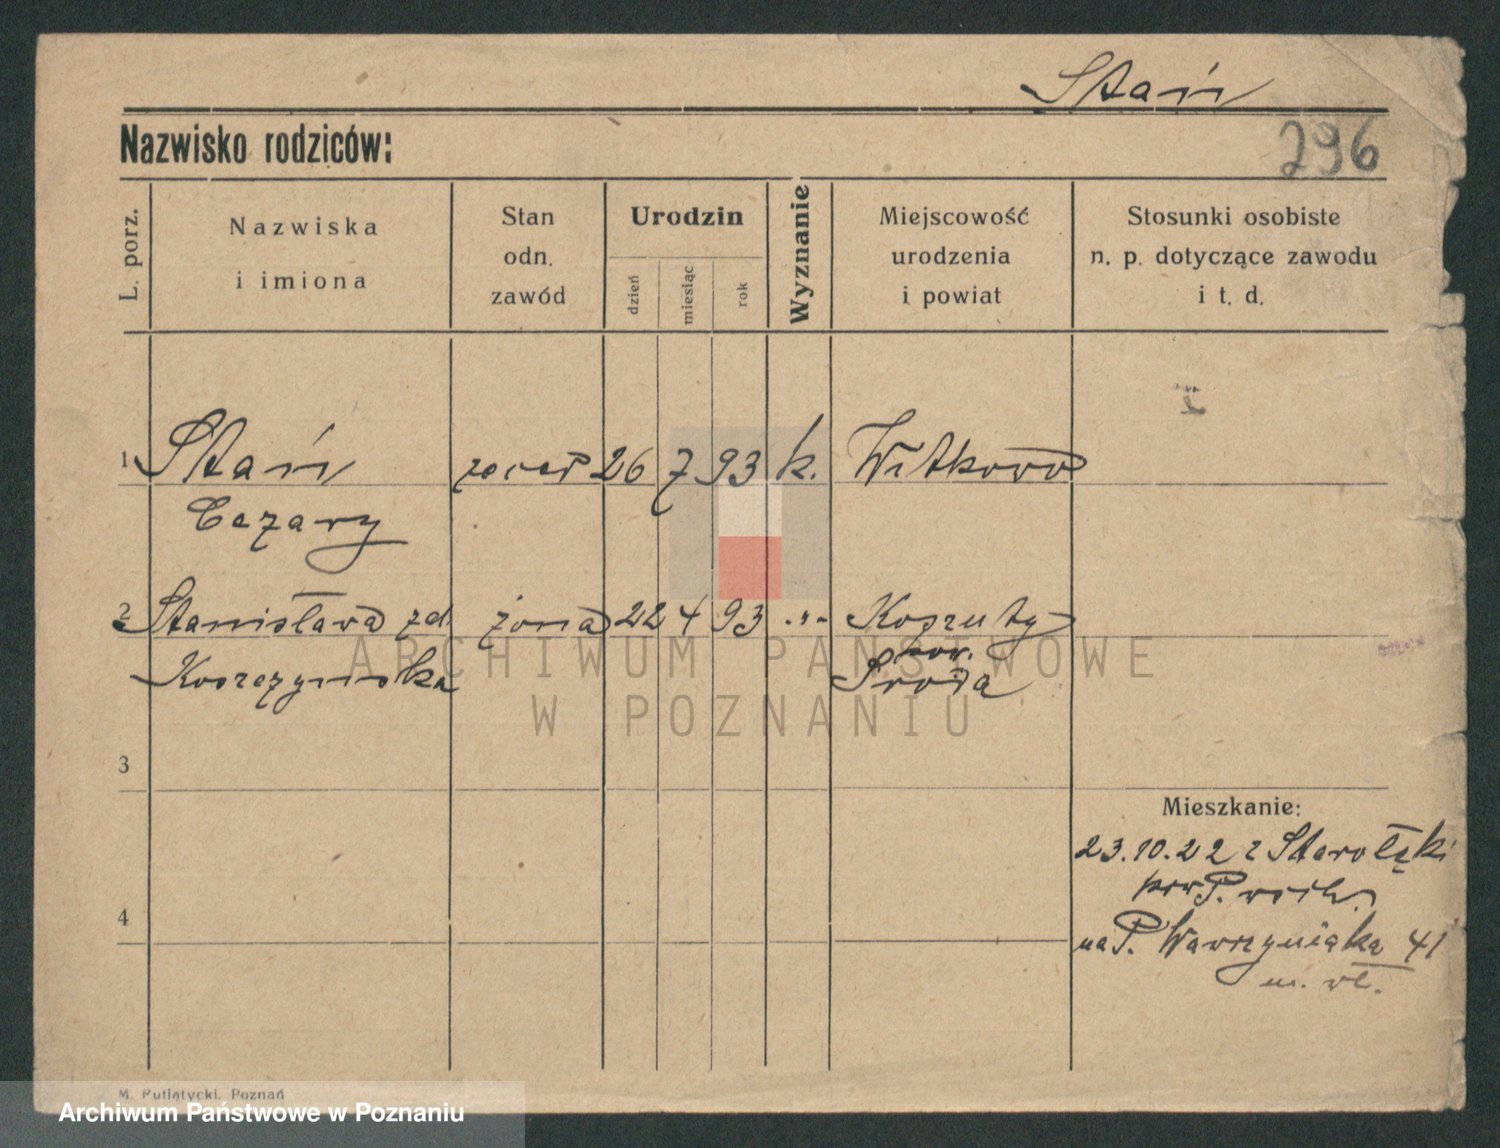 Stań
Nazwisko rodziców:
296
L. porz.
Nazwiska
i imiona
Stan
odn.
zawód
Urodzin
dzień
miesiąc
rok
Wyznanie
Miejscowość
urodzenia
i powiat
Stosunki osobiste
n. p. dotyczące zawodu
i t. d.
1 Stań zecer 26 7 93 k. Witkowo
Cezary
2 Stanisława zd. żona 22 4 93 -"- Koszuty
Koszczyńska pow.
Środa
3
Mieszkanie:
23.10.22 z Starołęki
pow P. wsch.
4
na P. Wawrzyniaka 41
m. wł.
ARCHIWUM PAŃSTWOWE
W POZNANIU
M. Putiatycki, Poznań
Archiwum Państwowe w Poznaniu